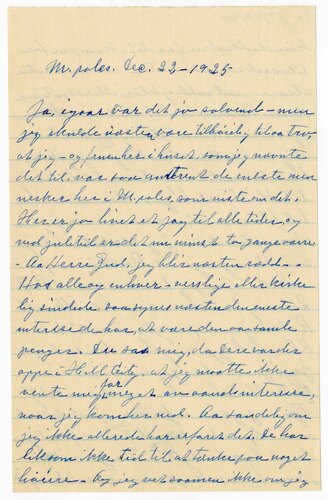 M.poles. Dec. 22 - 1925
Ja, igaar var det jo solvend - men
jeg skulde næsten være tilbøielig til at tro,
at jeg - og frue her i huset, som jeg nævnte
det til, var saa omtrent de eneste men
nesker her i M.poles, som viste om det.
Her er jo livet et Jag til alle tider, og
ved juletid er det me minst to gange værre
- Aa Herre Gud, jeg blir næsten rædd. -
Hos alle og enhver - verslige eller kirke
lig sindede saa synes næsten den eneste
interesse de har, at være den aa samle
penger. Du sa mig, da Dere var der
oppe i Hill City, at jeg maatte ikke
vente mig for meget av aandsinteresse,
naar jeg kom her ned. Aa sandelig om
jeg ikke allerede har erfaret det. De har
liksom ikke tid til at tænke paa noget
høiere. - Og jeg vet saamen ikke om jeg